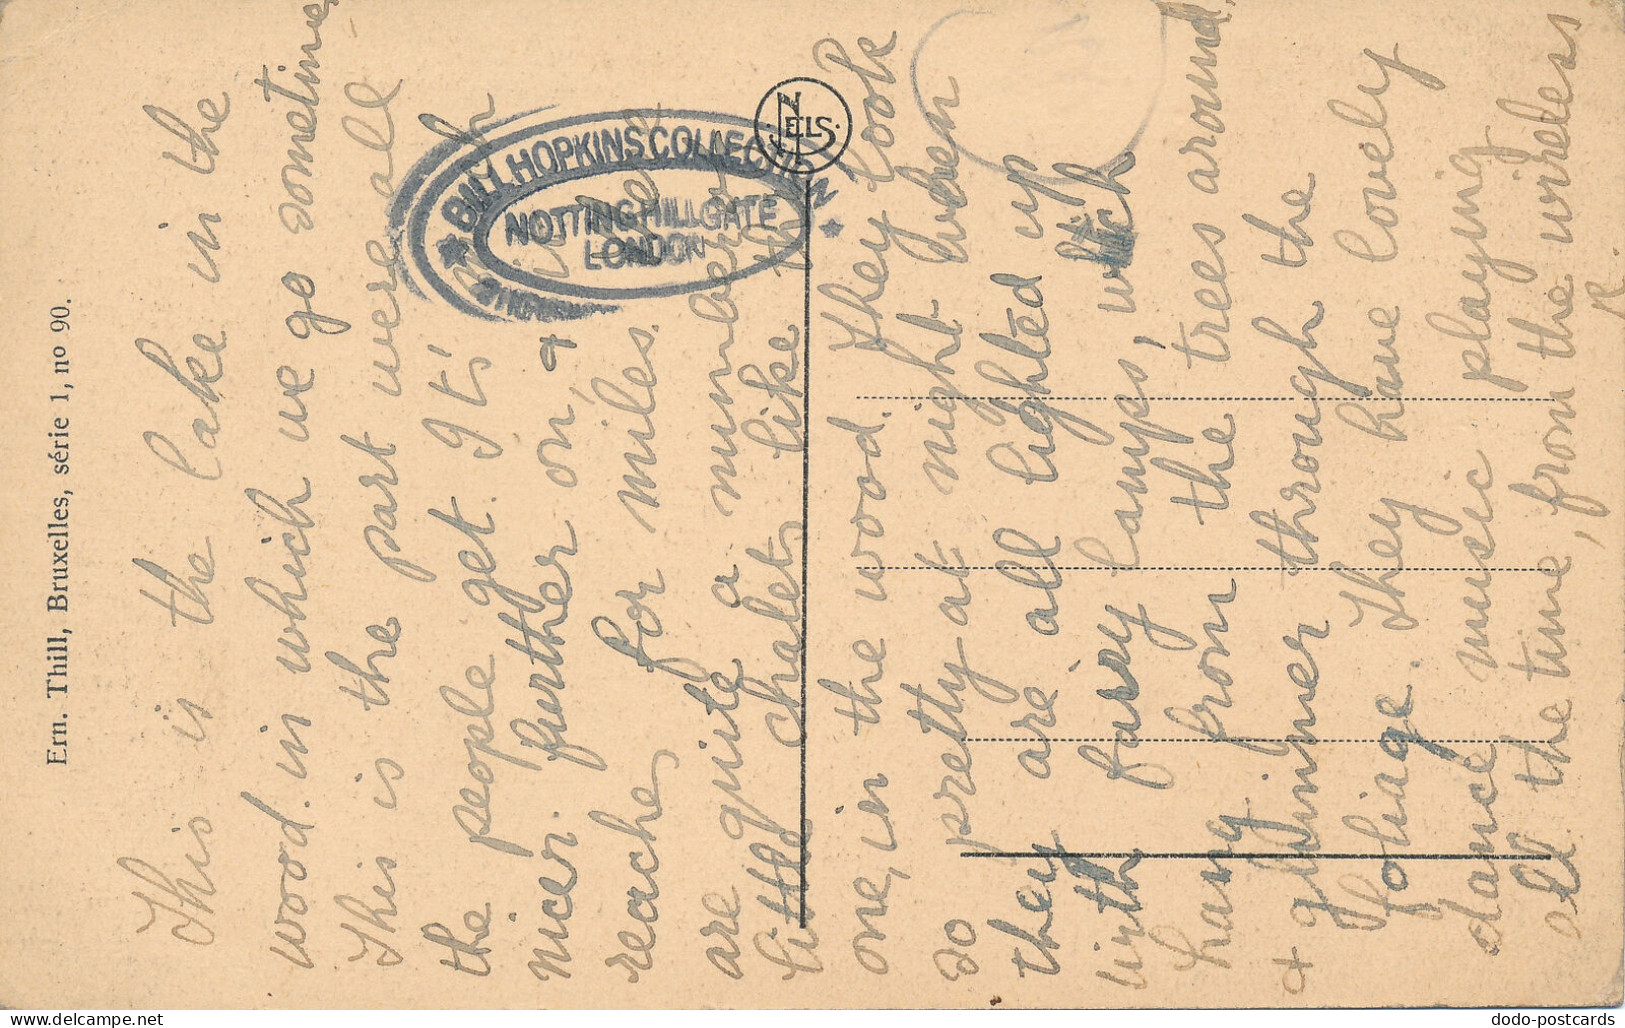 This is the lake in the
wood. in which we go sometimes
This is the part were all
the people get. It's
nicer. further on, &
reaches for miles.
are quite a number of
little chalets like this
one, in the wood. They look
so pretty at night when
they are all lighted up
with fairy lamps, which
hang from the trees around,
& glimmer through the
foliage. They have lovely
dance music playing
all the time, from the wireless
R.
Ern. Thill, Bruxelles, série 1, nº 90.
NELS.
BILL HOPKINS COLLECTION
NOTTING HILL GATE
LONDON
delcampe.net
dodo-postcards